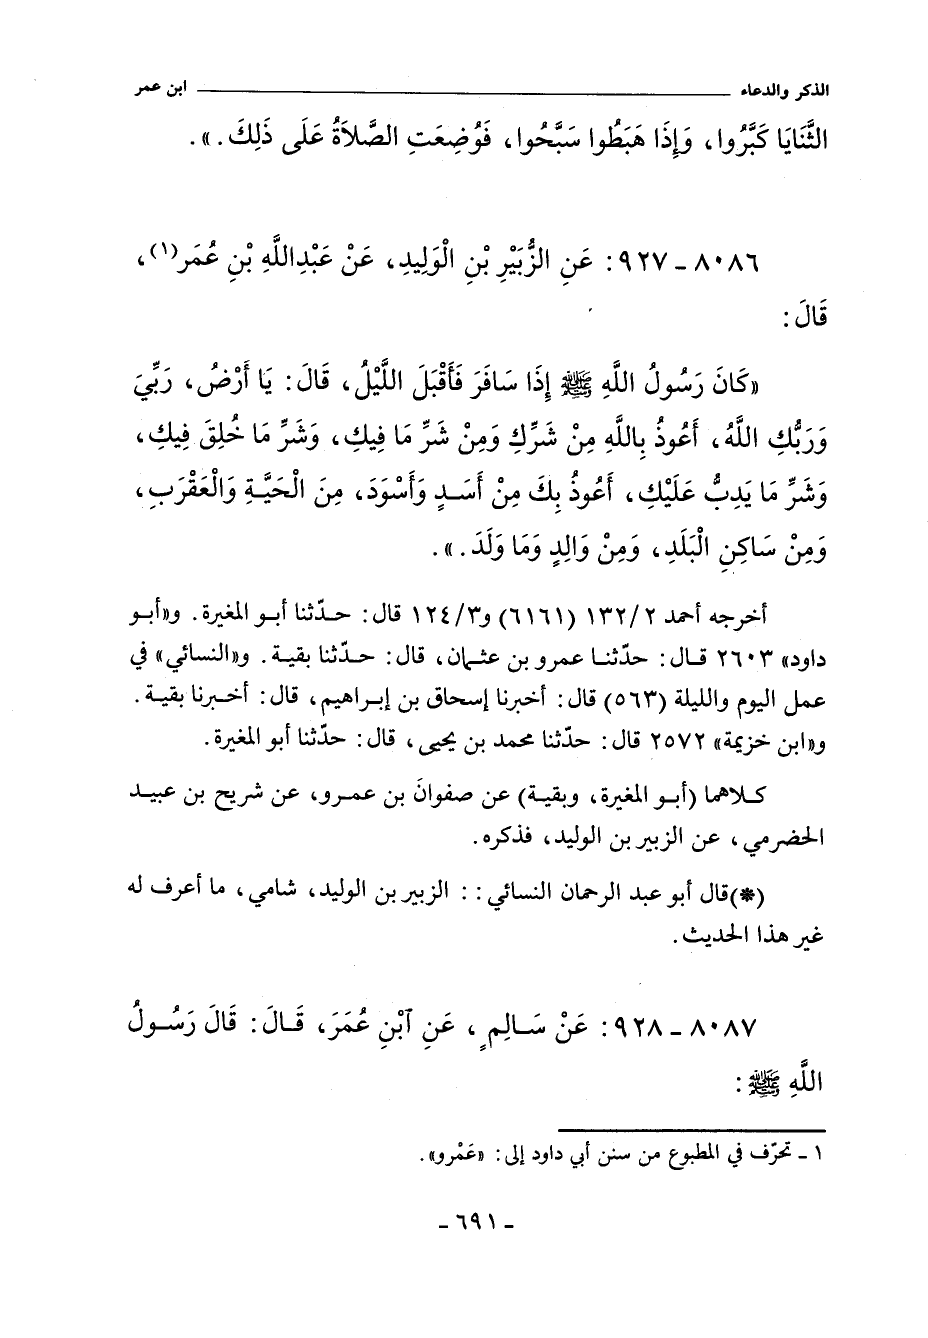 الذكر والدعاء ابن عمر
الثَّنَايَا كَبَّرُوا، وَإِذَا هَبَطُوا سَبَّحُوا، فَوُضِعَتِ الصَّلاَةُ عَلَى ذَلِكَ.».
٨٠٨٦ - ٩٢٧: عَنِ الزُّبَيْرِ بْنِ الْوَلِيدِ، عَنْ عَبْدِاللَّهِ بْنِ عُمَرَ(١)،
قَالَ:
«كَانَ رَسُولُ اللَّهِ ﷺ إِذَا سَافَرَ فَأَقْبَلَ اللَّيْلُ، قَالَ: يَا أَرْضُ، رَبِّيَ
وَرَبُّكِ اللَّهُ، أَعُوذُ بِاللَّهِ مِنْ شَرِّكِ وَمِنْ شَرِّ مَا فِيكِ، وَشَرِّ مَا خُلِقَ فِيكِ،
وَشَرِّ مَا يَدِبُّ عَلَيْكِ، أَعُوذُ بِكَ مِنْ أَسَدٍ وَأَسْوَدَ، مِنَ الْحَيَّةِ وَالْعَقْرَبِ،
وَمِنْ سَاكِنِ الْبَلَدِ، وَمِنْ وَالِدٍ وَمَا وَلَدَ.».
أخرجه أحمد ١٣٢/٢ (٦١٦١) و١٢٤/٣ قال: حدّثنا أبو المغيرة. و«أبو
داود» ٢٦٠٣ قال: حدّثنا عمرو بن عثمان، قال: حدّثنا بقية. و«النسائي» في
عمل اليوم والليلة (٥٦٣) قال: أخبرنا إسحاق بن إبراهيم، قال: أخبرنا بقية.
و«ابن خزيمة» ٢٥٧٢ قال: حدّثنا محمد بن يحيى، قال: حدّثنا أبو المغيرة.
كلاهما (أبو المغيرة، وبقية) عن صفوانَ بن عمرو، عن شريح بن عبيد
الحضرمي، عن الزبير بن الوليد، فذكره.
(*)قال أبو عبد الرحمان النسائي: : الزبير بن الوليد، شامي، ما أعرف له
غير هذا الحديث.
٨٠٨٧ - ٩٢٨: عَنْ سَالِمٍ، عَنِ ٱبْنِ عُمَرَ، قَالَ: قَالَ رَسُولُ
اللَّهِ ﷺ:
١ - تحرّف في المطبوع من سنن أبي داود إلى: «عَمْرو».
- ٦٩١ -